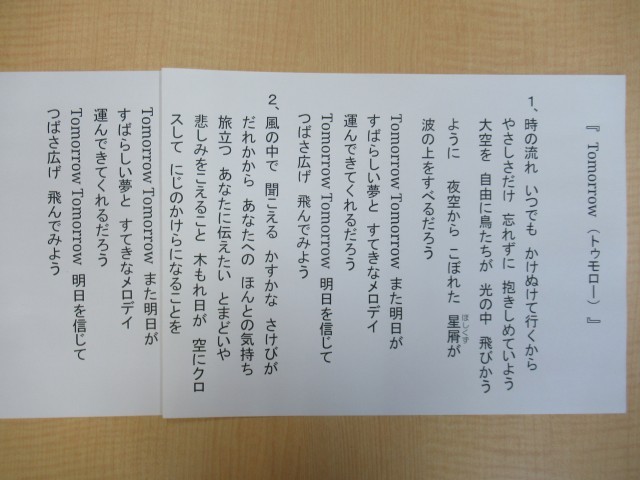 『 Tomorrow （トゥモロー） 』
1、時の流れ いつでも かけぬけて行くから
やさしさだけ 忘れずに 抱きしめていよう
大空を 自由に鳥たちが 光の中 飛びかう
ように 夜空から こぼれた 星屑が
ほしくず
波の上をすべるだろう
Tomorrow Tomorrow また明日が
すばらしい夢と すてきなメロデイ
運んできてくれるだろう
Tomorrow Tomorrow 明日を信じて
つばさ広げ 飛んでみよう
2、風の中で 聞こえる かすかな さけびが
だれかから あなたへの ほんとの気持ち
旅立つ あなたに伝えたい とまどいや
悲しみをこえること 木もれ日が 空にクロ
スして にじのかけらになることを
Tomorrow Tomorrow また明日が
すばらしい夢と すてきなメロデイ
運んできてくれるだろう
Tomorrow Tomorrow 明日を信じて
つばさ広げ 飛んでみよう